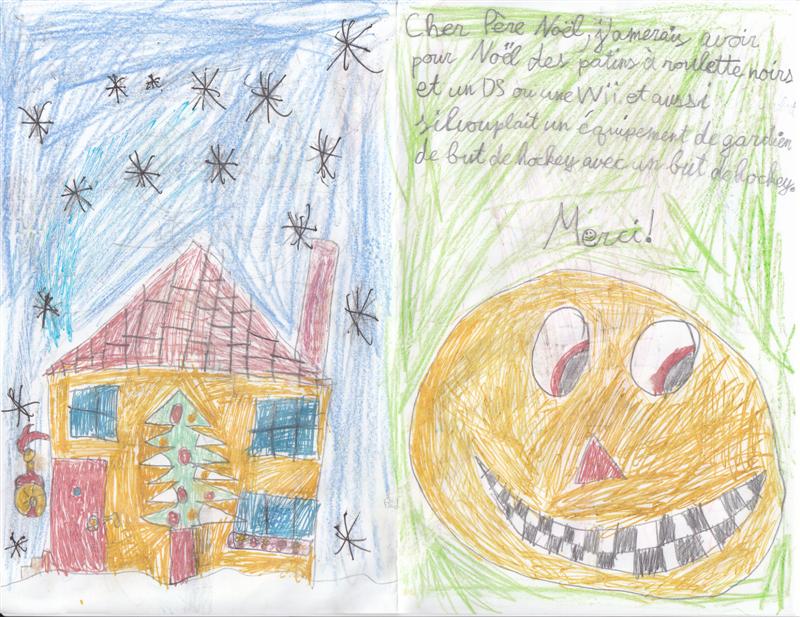 Cher Père Noël, j'amerais avoir
pour Noël des patins à roulette noirs
et un DS ou une Wii et aussi
silvouplait un équipement de gardien
de but de hockey avec un but de hockey.
Merci!